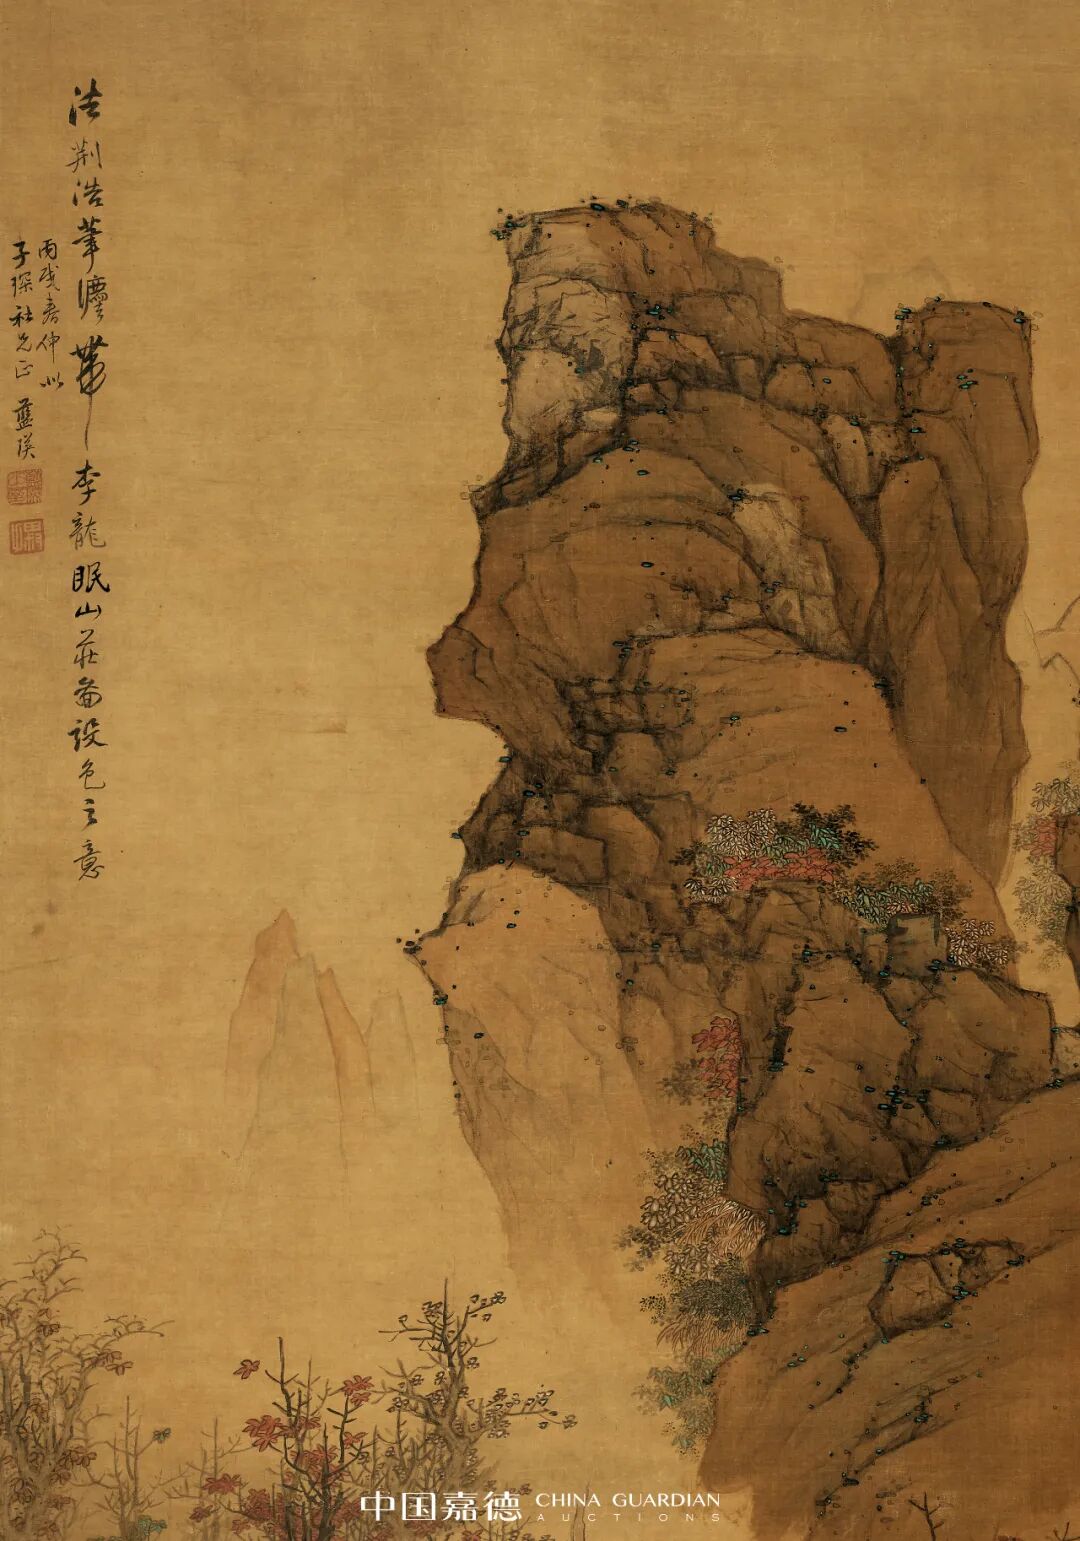 法荆浩筆灋兼李龍眠山莊圖設色之意
丙戌春仲似
子琛社兄正 藍瑛
中国嘉德 CHINA GUARDIAN
AUCTIONS